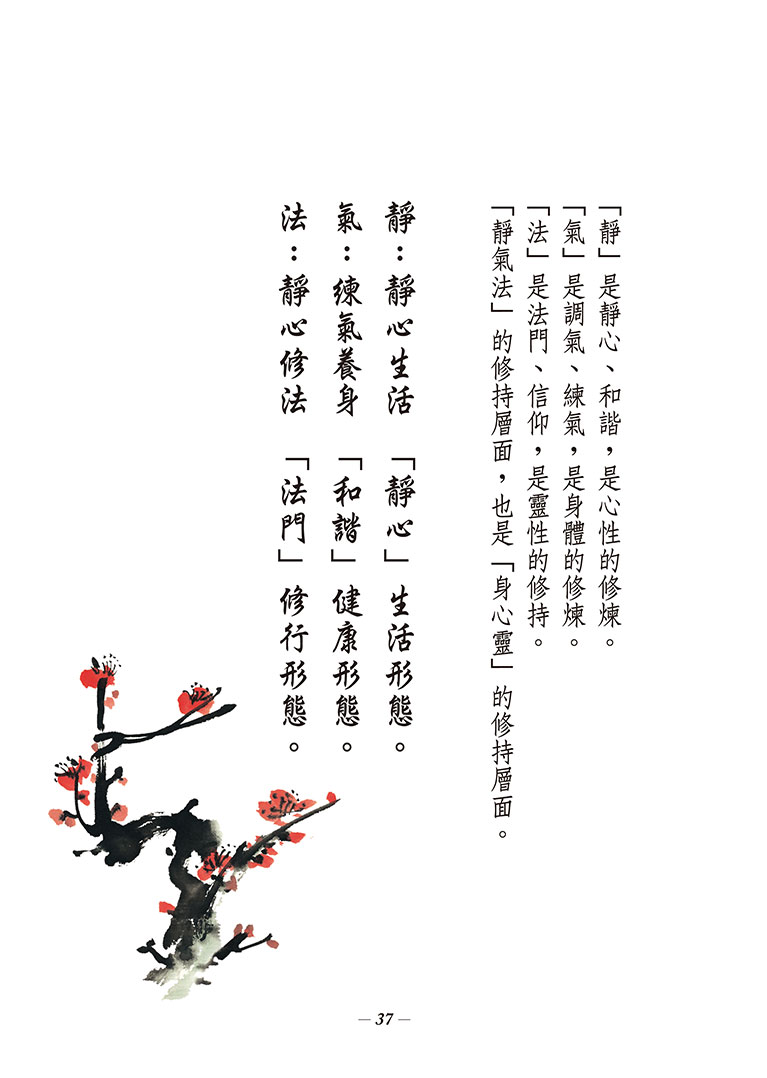 「靜」是靜心、和諧，是心性的修煉。
「氣」是調氣、練氣，是身體的修煉。
「法」是法門、信仰，是靈性的修持。
「靜氣法」的修持層面，也是「身心靈」的修持層面。
靜：靜心生活　「靜心」生活形態。
氣：練氣養身　「和諧」健康形態。
法：靜心修法　「法門」修行形態。
— 37 —